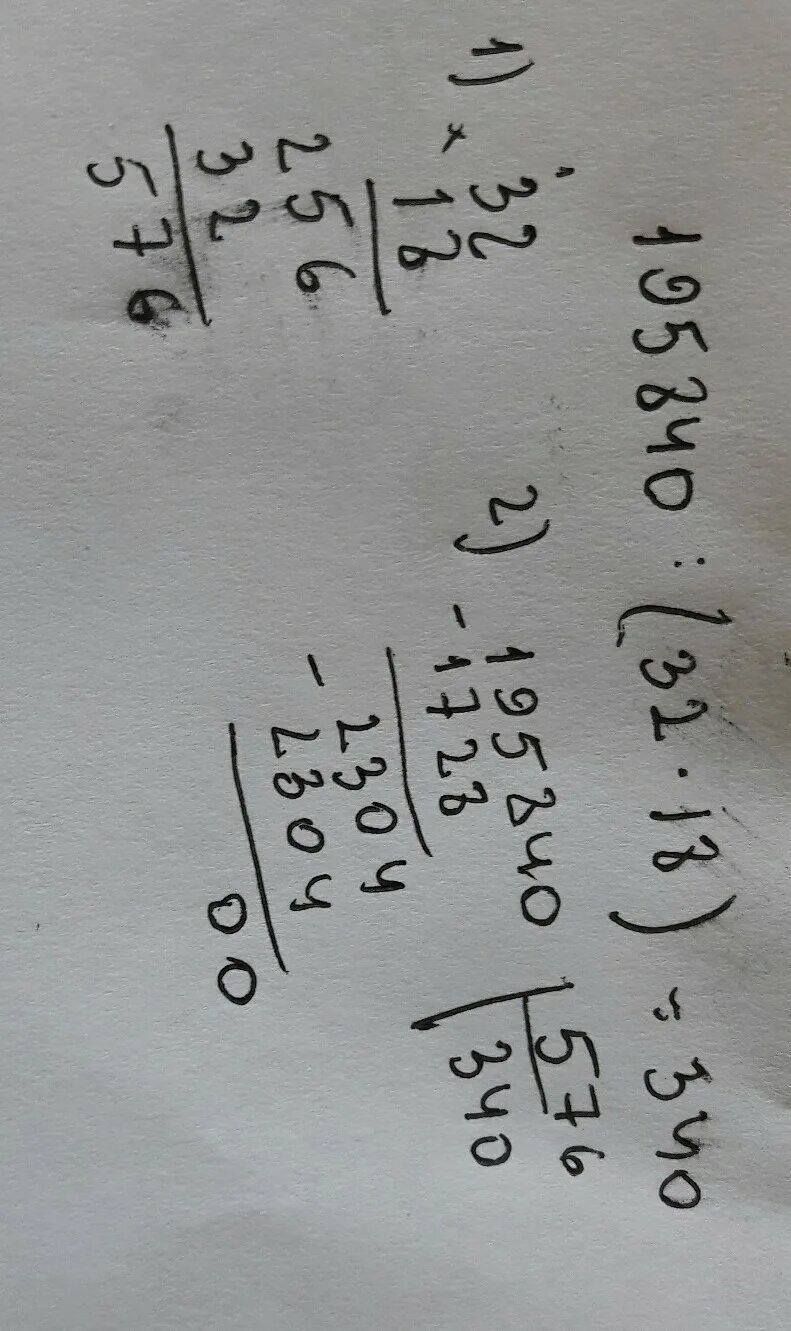 195840 : (32 · 18) = 340
1) × 32
18
256
32
576
2) - 195840 | 576
1728 340
- 2304
2304
00